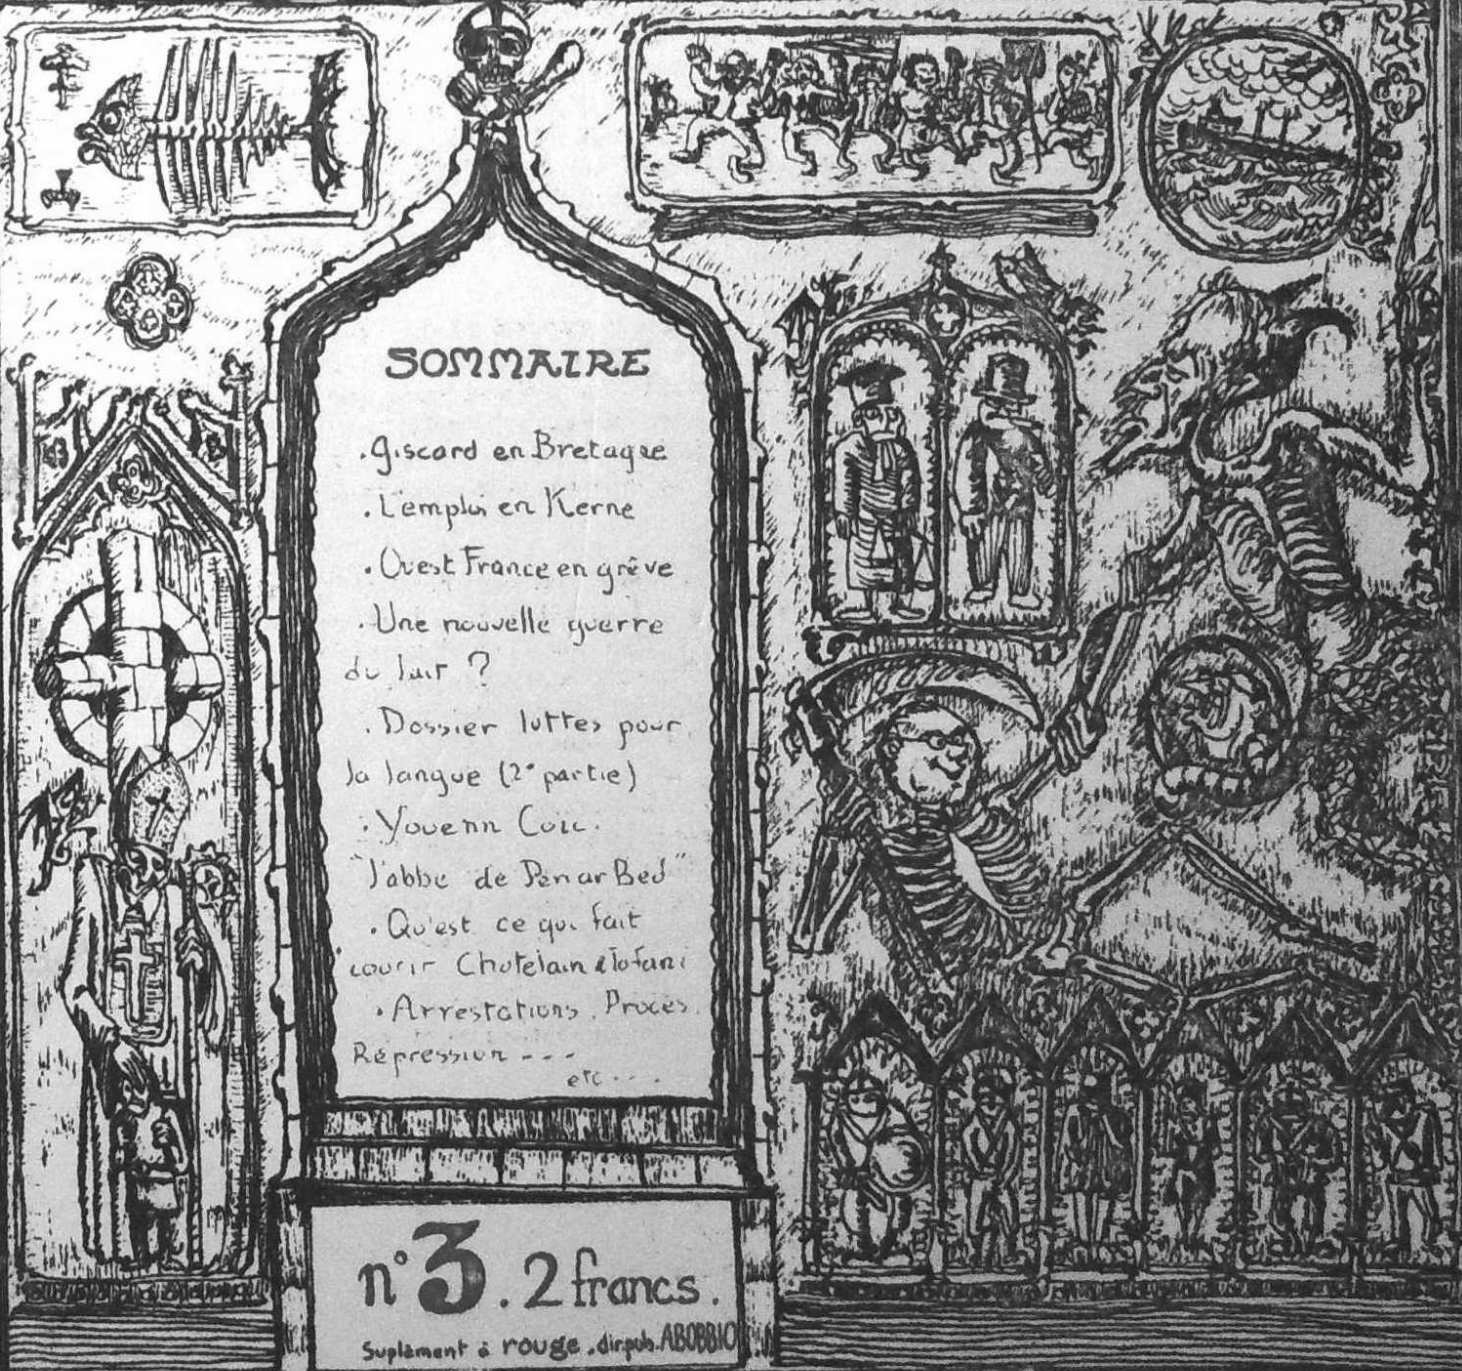 SOMMAIRE
. Giscard en Bretagne
. L'emploi en Kerne
. Ouest France en grève
. Une nouvelle guerre
du lait ?
. Dossier luttes pour
la langue (2° partie)
. Youenn Coic.
"l'abbé de Penn ar Bed"
. Qu'est ce qui fait
courir Chatelain & Tofani
. Arrestations . Procès.
Répression - - -
etc - - - .
n° 3 . 2 francs .
Suplément à rouge . dir.pub. A BOBBIO